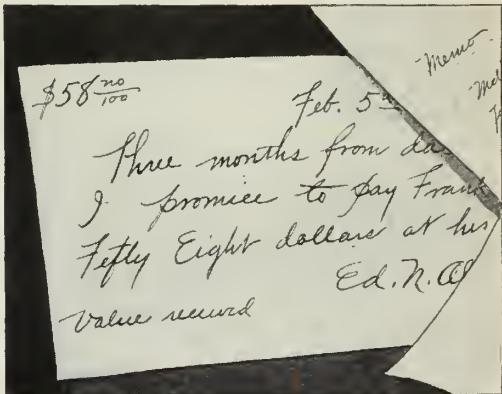 $58 no/100
Feb. 5
Three months from da
I promice to pay Frank
Fefty Eight dollars at his
Ed. N. Al
Value recurd
Memo